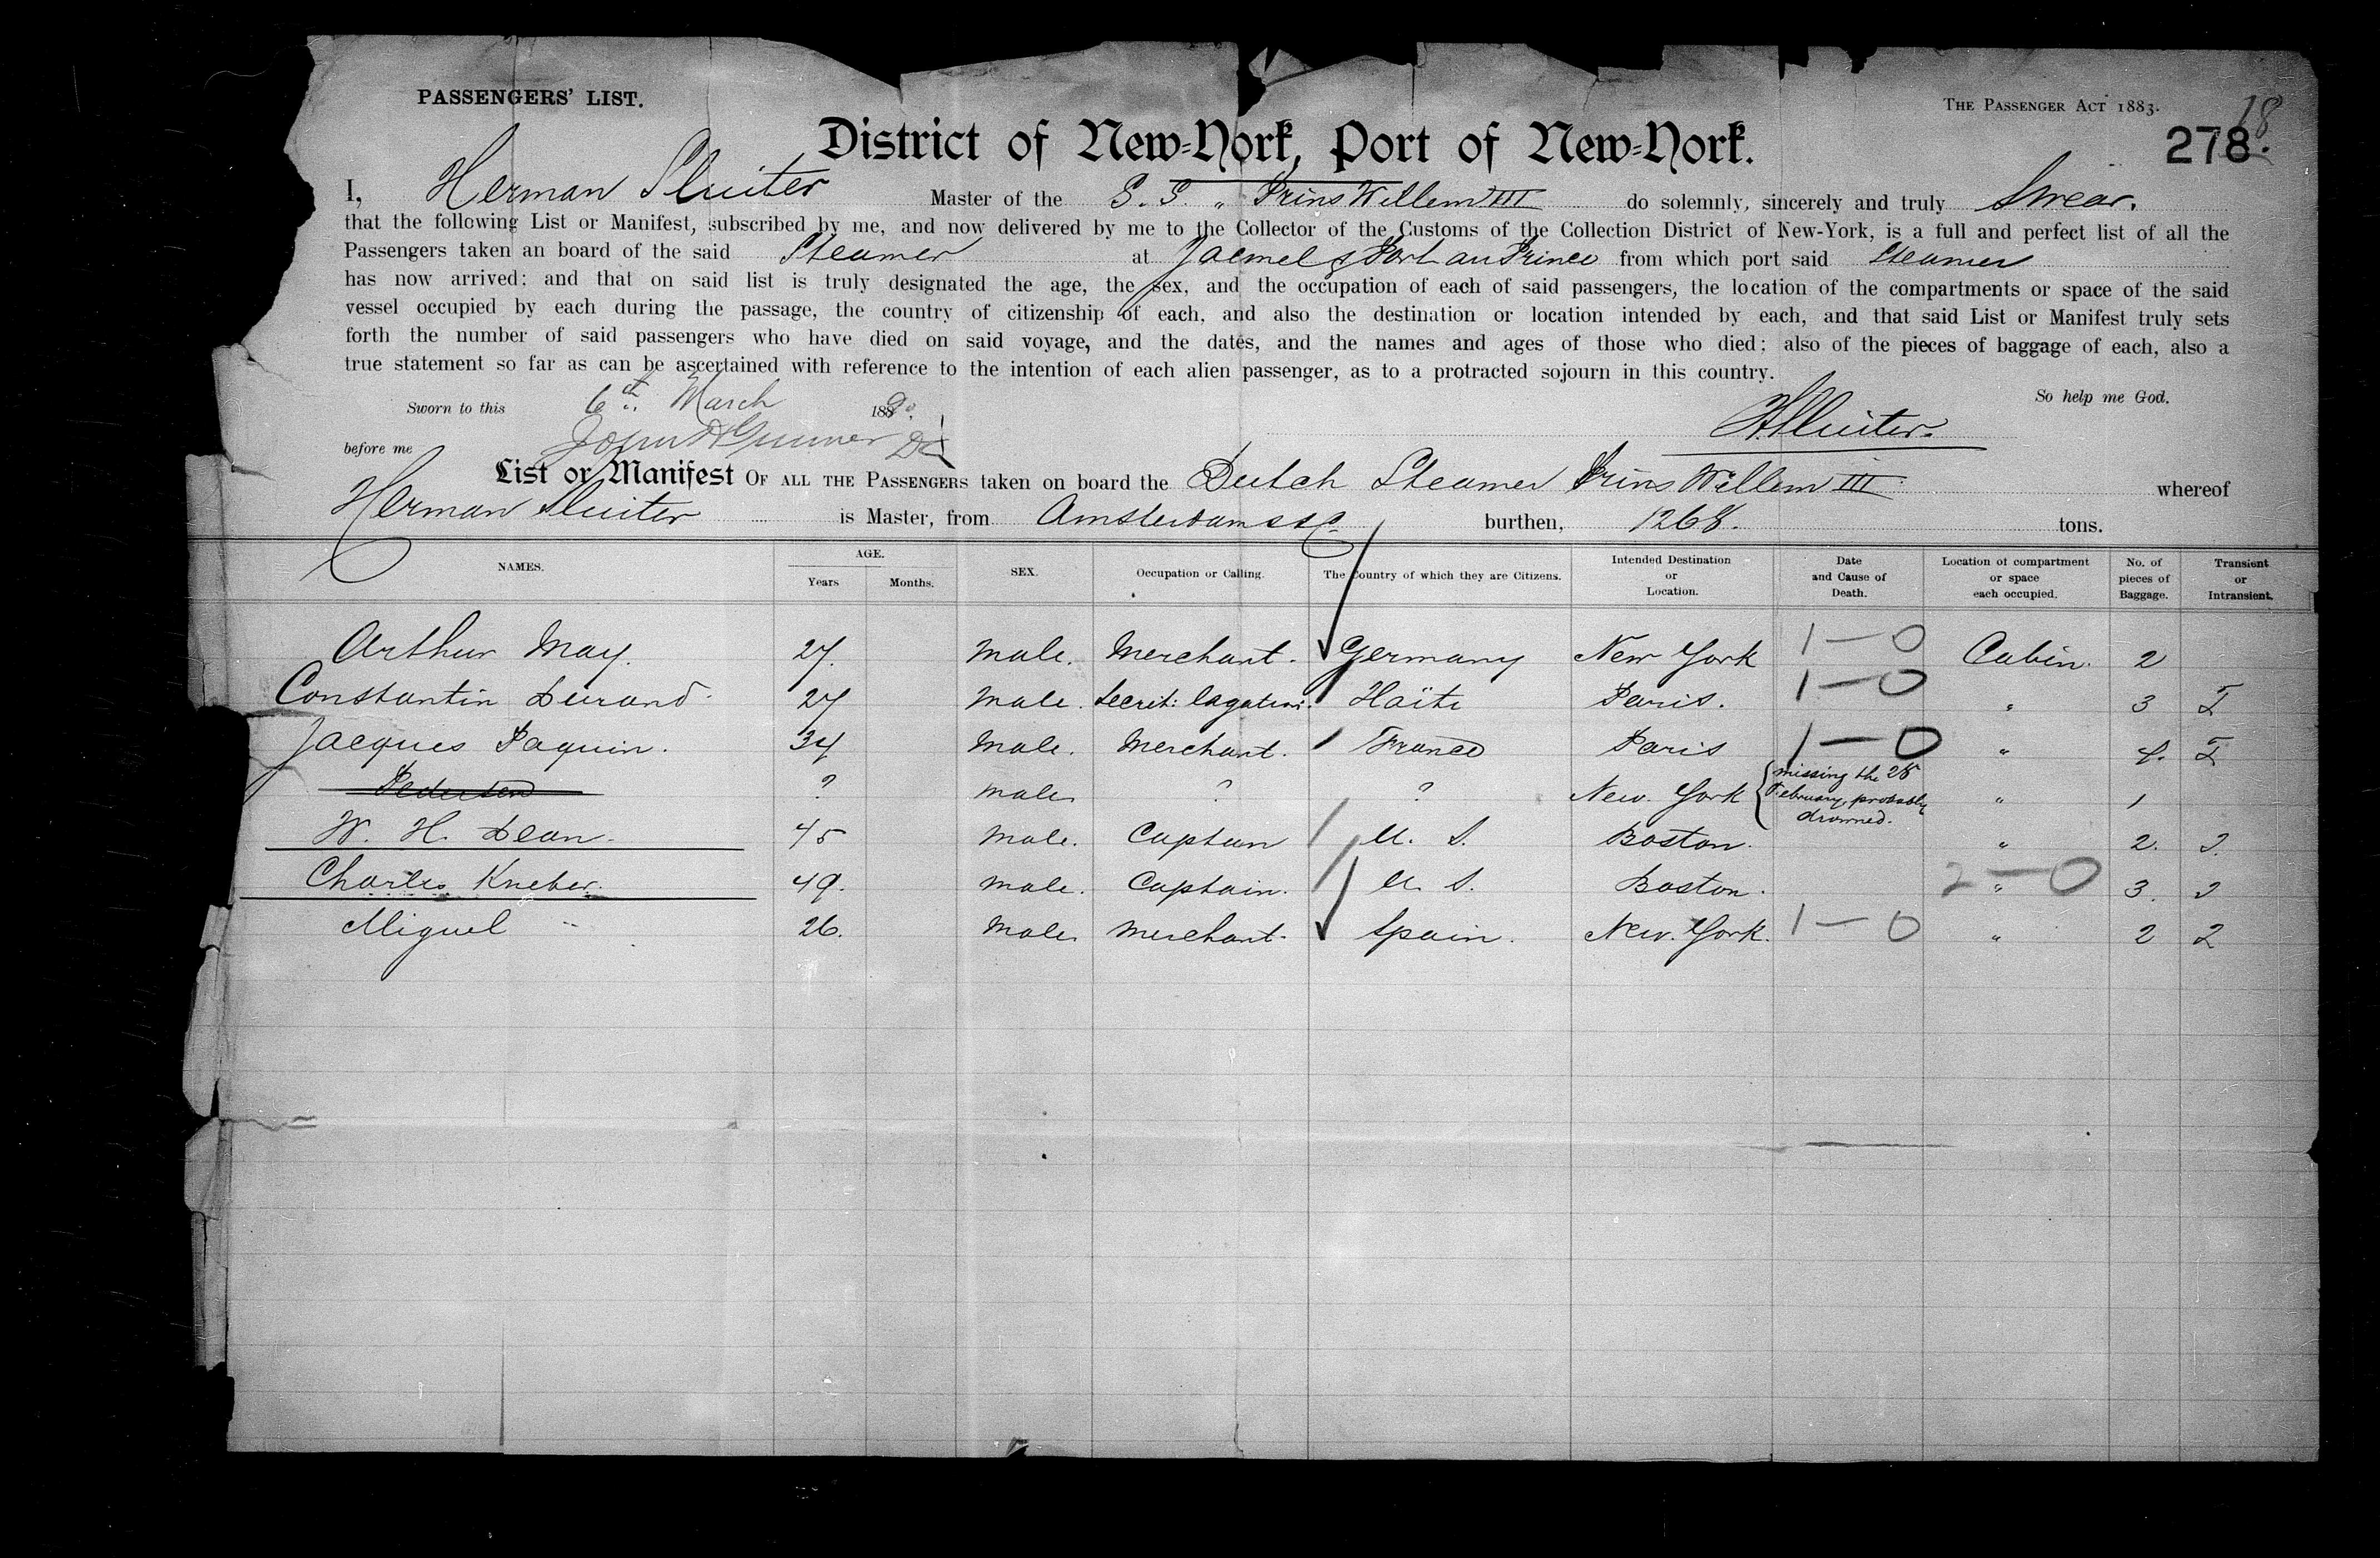 PASSENGERS' LIST.
THE PASSENGER ACT 1883.
18
278.
District of New-York, Port of New-York.
I, Herman Sluiter Master of the S. S. „ Prins Willem III do solemnly, sincerely and truly Swear.
that the following List or Manifest, subscribed by me, and now delivered by me to the Collector of the Customs of the Collection District of New-York, is a full and perfect list of all the
Passengers taken an board of the said Steamer at Jacmel & Port au Prince from which port said Steamer
has now arrived: and that on said list is truly designated the age, the sex, and the occupation of each of said passengers, the location of the compartments or space of the said
vessel occupied by each during the passage, the country of citizenship of each, and also the destination or location intended by each, and that said List or Manifest truly sets
forth the number of said passengers who have died on said voyage, and the dates, and the names and ages of those who died: also of the pieces of baggage of each, also a
true statement so far as can be ascertained with reference to the intention of each alien passenger, as to a protracted sojourn in this country.
So help me God.
Sworn to this 6th March 1890.
before me John
HSluiter.
List or Manifest OF ALL THE PASSENGERS taken on board the Dutch Steamer Prins Willem III whereof
Herman Sluiter is Master, from Amsterdam burthen, 1268. tons.
NAMES. AGE. Years Months. SEX. Occupation or Calling. The Country of which they are Citizens. Intended Destination or Location. Date and Cause of Death. Location of compartment or space each occupied. No. of pieces of Baggage. Transient or Intransient.
Arthur May. 27. Male. Merchant. Germany New York 1—0 Cabin. 2
Constantin Durand 27 Male. Secrit: legation. Haïti Paris. 1—0 „ 3 T
Jacques Paquin. 34 Male. Merchant. France Paris 1—0 „ 4. T
Pedersen ? Male ? ? New York missing the 28 February, probably drowned. „ 1
W. H. Dean. 45 Male. Captain U. S. Boston. „ 2.
Charles Kneber. 49. Male. Captain. U. S. Boston. 2—0 „ 3.
Miguel 26. Male. Merchant. Spain. New York. 1—0 „ 2